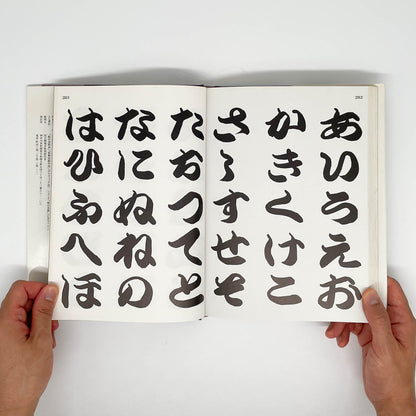 282
あいうえお
かきくけこ
さしすせそ
たちつてと
283
なにぬねの
はひふへほ